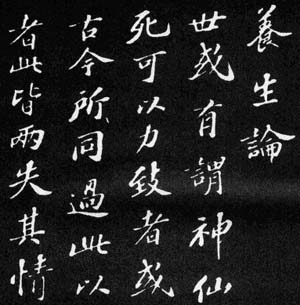 養生論
世或有謂神仙
死可以力致者或
古今所同過此以
者此皆兩失其情